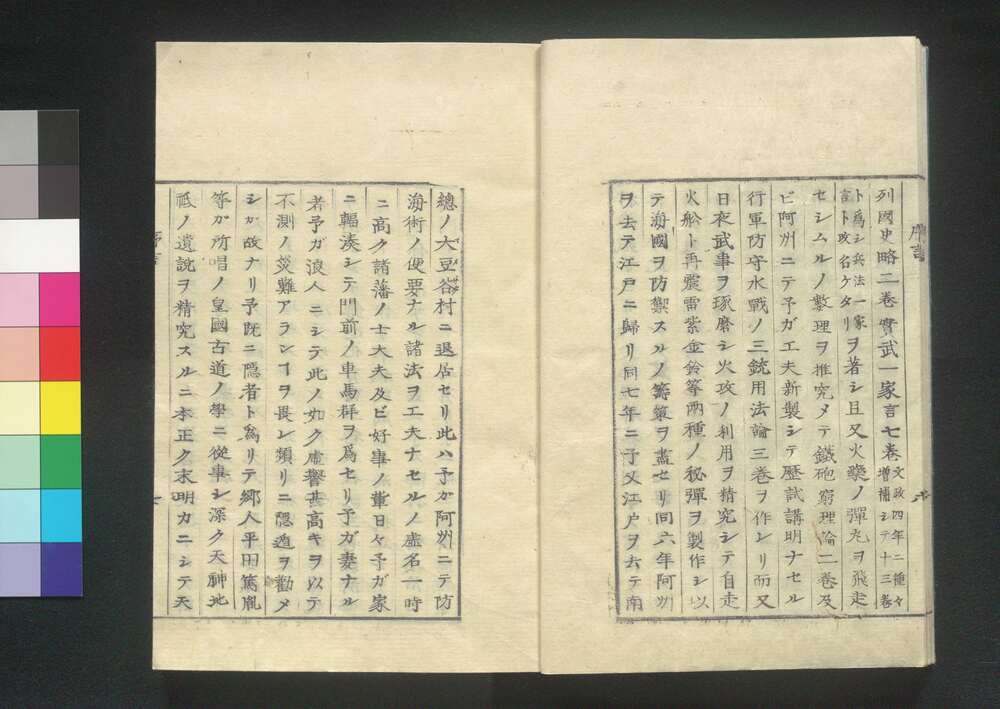 列國史略二卷實武一家言七卷文政四年ニ種々増補シテ十三卷
ト爲シ兵法一家言ト改名ケタリヲ著シ且又火藥ノ彈丸ヲ飛走
セシムルノ數理ヲ推究メテ鐵砲窮理論二卷及
ビ阿州ニテ予ガ工夫新製シテ歷試講明ナセル
行軍防守水戰ノ三銃用法論三卷ヲ作レリ而又
日夜武事ヲ琢磨シ火攻ノ利用ヲ精究シテ自走
火舩ト再震雷紫金鈴等兩種ノ秘彈ヲ製作シ以
テ海國ヲ防禦スルノ籌策ヲ盡セリ同六年阿州
ヲ去テ江戸ニ歸リ同七年ニ予又江戸ヲ去テ南
總ノ大豆谷村ニ退居セリ此ハ予ガ阿州ニテ防
海術ノ便要ナル諸法ヲ工夫ナセルノ虚名一時
ニ高ク諸藩ノ士大夫及ビ好事ノ輩日々予ガ家
ニ輻湊シテ門前ノ車馬群ヲ爲セリ予ガ妻ナル
者予ガ浪人ニシテ此ノ如ク虚譽甚高キヲ以テ
不測ノ災難アランヿヲ畏レ頻リニ隱遁ヲ勸メ
シガ故ナリ予既ニ隱者ト爲リテ郷人平田篤胤
等ガ所唱ノ皇國古道ノ學ニ從事シ深ク天神地
祇ノ遺説ヲ精究スルニ本正ク末明カニシテ天